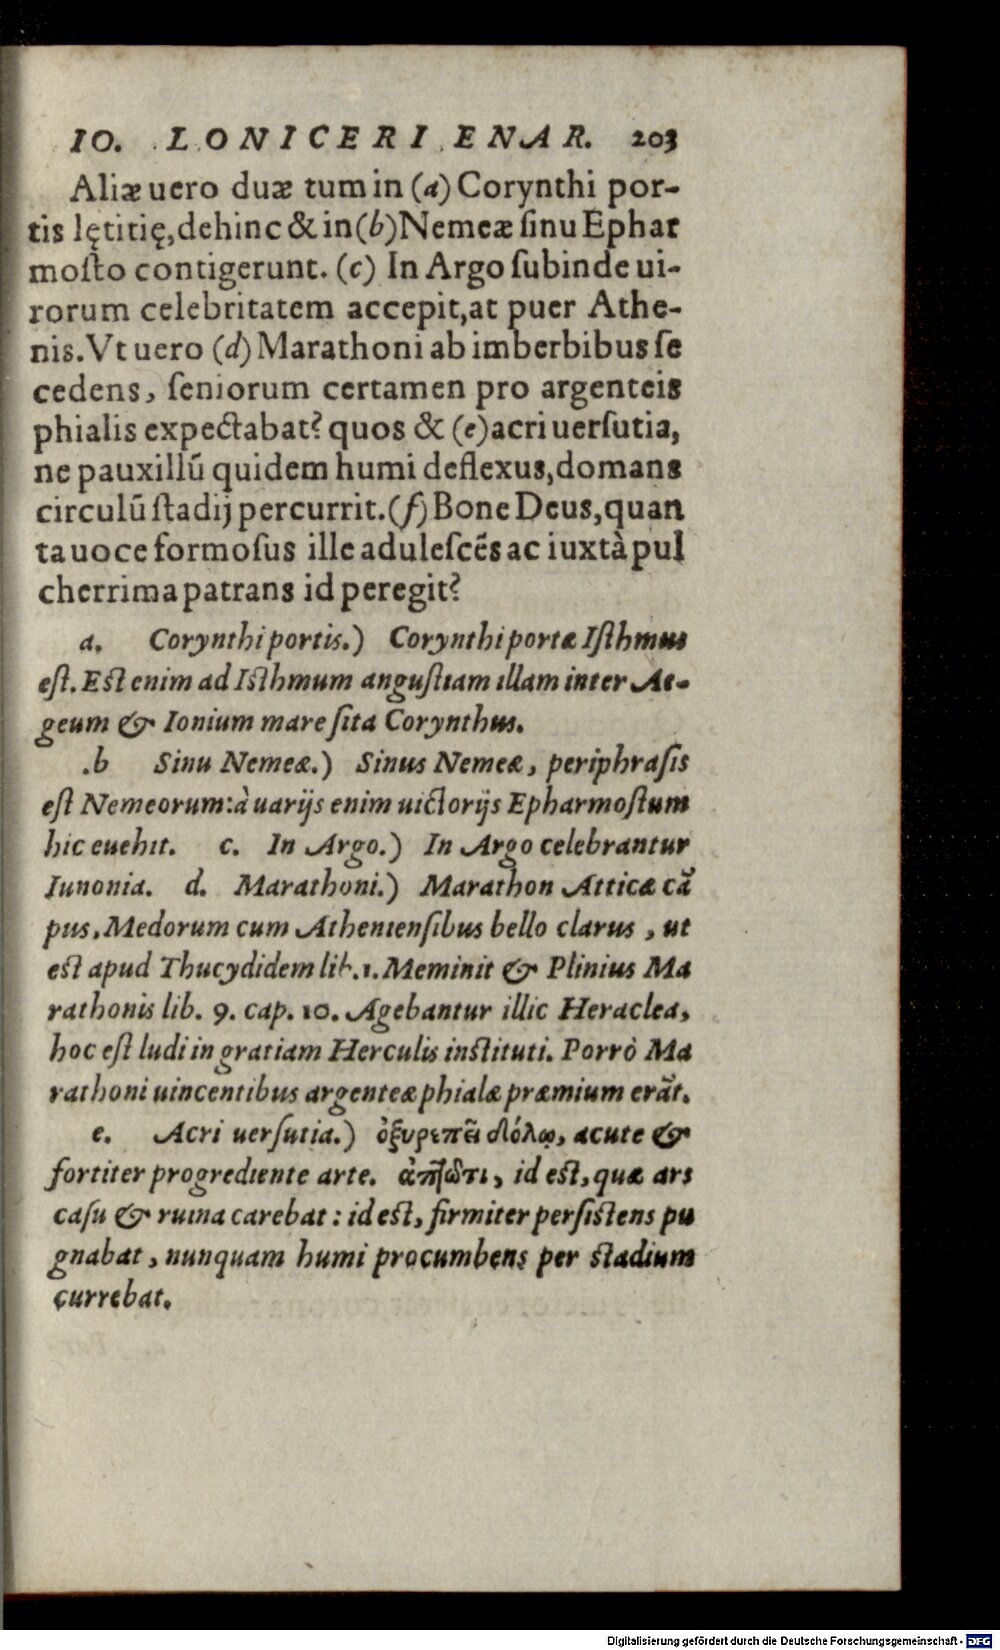 IO. LONICERI ENAR. 203
Aliæ uero duæ tum in (a) Corynthi por-
tis lętitię, dehinc & in (b) Nemeæ ſinu Ephar
moſto contigerunt. (c) In Argo ſubinde ui-
rorum celebritatem accepit, at puer Athe-
nis. Vt uero (d) Marathoni ab imberbibus ſe
cedens, ſeniorum certamen pro argenteis
phialis expectabat? quos & (e) acri uerſutia,
ne pauxillū quidem humi deflexus, domans
circulū ſtadij percurrit. (f) Bone Deus, quan
ta uoce formoſus ille aduleſcēs ac iuxtà pul
cherrima patrans id peregit?
a. Corynthi portis.) Corynthi portæ Iſthmus
eſt. Eſt enim ad Iſthmum anguſtiam illam inter Ae-
geum & Ionium mare ſita Corynthus.
.b Sinu Nemeæ.) Sinus Nemeæ, periphraſis
eſt Nemeorum: à uarijs enim uictorijs Epharmoſtum
hic euehit. c. In Argo.) In Argo celebrantur
Iunonia. d. Marathoni.) Marathon Atticæ cā
pus, Medorum cum Athenienſibus bello clarus, ut
eſt apud Thucydidem lib. 1. Meminit & Plinius Ma
rathonis lib. 9. cap. 10. Agebantur illic Heraclea,
hoc eſt ludi in gratiam Herculis inſtituti. Porrò Ma
rathoni uincentibus argenteæ phialæ præmium erāt.
e. Acri uerſutia.) ὀξυρεπεῖ δόλῳ, acute &
fortiter progrediente arte. ἀπτῶτι, id eſt, quæ ars
caſu & ruina carebat: id eſt, firmiter perſiſtens pu
gnabat, nunquam humi procumbens per ſtadium
currebat.
Digitalisierung gefördert durch die Deutsche Forschungsgemeinschaft - DFG